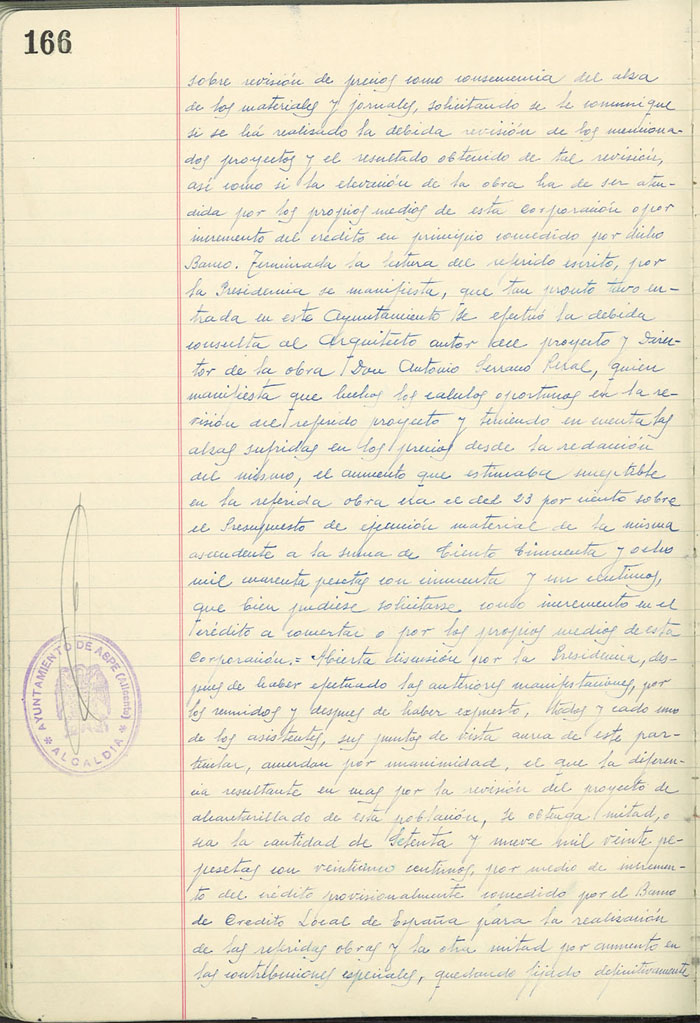 166
sobre revisión de precios como consecuencia del alza
de los materiales y jornales, solicitando se le comunique
si se há realizado la debida revisión de los menciona-
dos proyectos y el resultado obtenido de tal revisión,
así como si la elevación de la obra ha de ser aten-
dida por los propios medios de esta Corporación o por
incremento del crédito en principio concedido por dicho
Banco. Terminada la lectura del referido escrito, por
la Presidencia se manifiesta, que tan pronto tuvo en-
trada en este Ayuntamiento se efectuó la debida
consulta al Arquitecto autor del proyecto y Direc-
tor de la obra Don Antonio Serrano Peral, quien
manifiesta que hechos los calculos oportunos en la re-
visión del referido proyecto y teniendo en cuenta las
alzas sufridas en los precios desde la redacción
del mismo, el aumento que estimaba suceptible
en la referida obra era el del 23 por ciento sobre
el Presupuesto de ejecución material de la misma
ascendente a la suma de Ciento Cincuenta y ocho
mil cuarenta pesetas con cincuenta y un centimos,
que bien pudiese solicitarse como incremento en el
crédito a concertar o por los propios medios de esta
Corporación.= Abierta discusión por la Presidencia, des-
pues de haber efectuado las anteriores manifestaciones, por
los reunidos y despues de haber expuesto, todos y cada uno
de los asistentes, sus puntos de vista acerca de este par-
ticular, acuerdan por unanimidad, el que la diferen-
cia resultante en mas por la revisión del proyecto de
alcantarillado de esta población, se obtenga mitad, o
sea la cantidad de Setenta y nueve mil veinte pe-
pesetas con veinticinco centimos, por medio de incremen-
to del crédito provisionalmente concedido por el Banco
de Credito Local de España para la realización
de las referidas obras y la otra mitad por aumento en
las contribuciones especiales, quedando fijado definitivamente
AYUNTAMIENTO DE ASPE (Alicante)
* ALCALDIA *